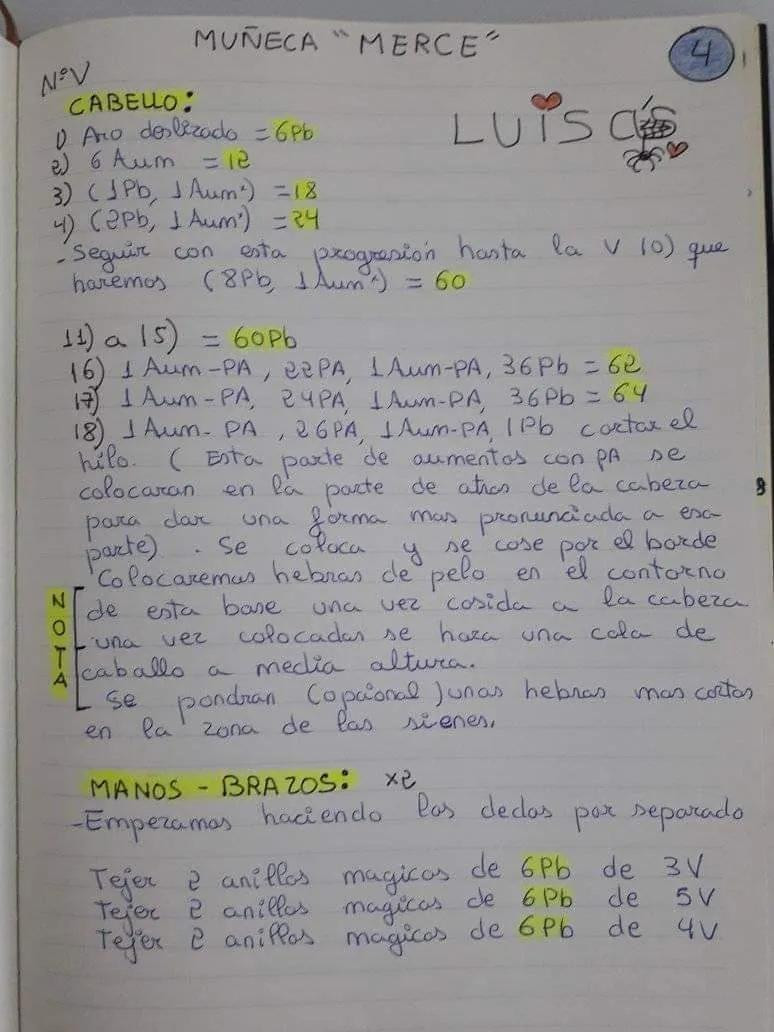 MUÑECA "MERCE"
4
NºV
CABELLO:
LUISA'S
1) Aro deslizado = 6Pb
2) 6 Aum = 12
3) (1Pb, 1Aum) = 18
4) (2Pb, 1Aum) = 24
- Seguir con esta progresión hasta la V 10) que
haremos (8Pb, 1Aum) = 60
11) a 15) = 60Pb
16) 1 Aum-PA, 22PA, 1Aum-PA, 36Pb = 62
17) 1 Aum-PA, 24PA, 1Aum-PA, 36Pb = 64
18) 1 Aum-PA, 26PA, 1Aum-PA, 1Pb cortar el
hilo. (Esta parte de aumentos con PA se
colocaran en la parte de atras de la cabeza
para dar una forma mas pronunciada a esa
parte). Se coloca y se cose por el borde
Colocaremos hebras de pelo en el contorno
de esta base una vez cosida a la cabeza
NOTA
- una vez colocadas se hara una cola de
caballo a media altura.
Se pondran (opcional) unas hebras mas cortas
en la zona de las sienes.
MANOS - BRAZOS: x2
- Empezamos haciendo los dedos por separado
Tejer 2 anillos magicos de 6Pb de 3V
Tejer 2 anillos magicos de 6Pb de 5V
Tejer 2 anillos magicos de 6Pb de 4V